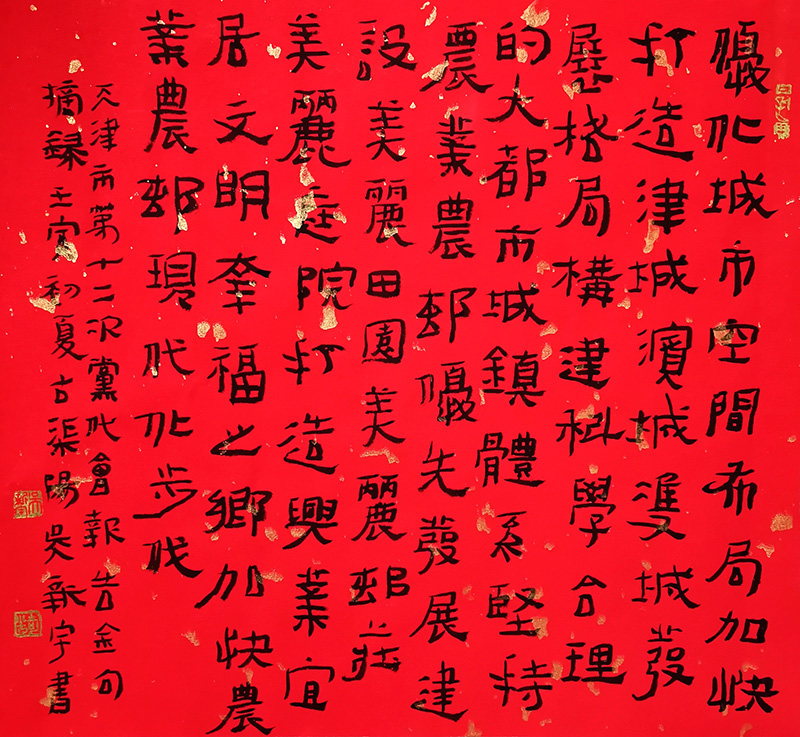 優化城市空間布局加快
打造津城濱城雙城發
展格局構建科學合理
的大都市城鎮體系堅持
農業農邨優先發展建
設美麗田園美麗邨莊
美麗庭院打造興業宜
居文明幸福之鄉加快農
業農邨現代化步伐
天津市第十二次黨代會報告金句
摘錄壬寅初夏古渠陽吳新宇書